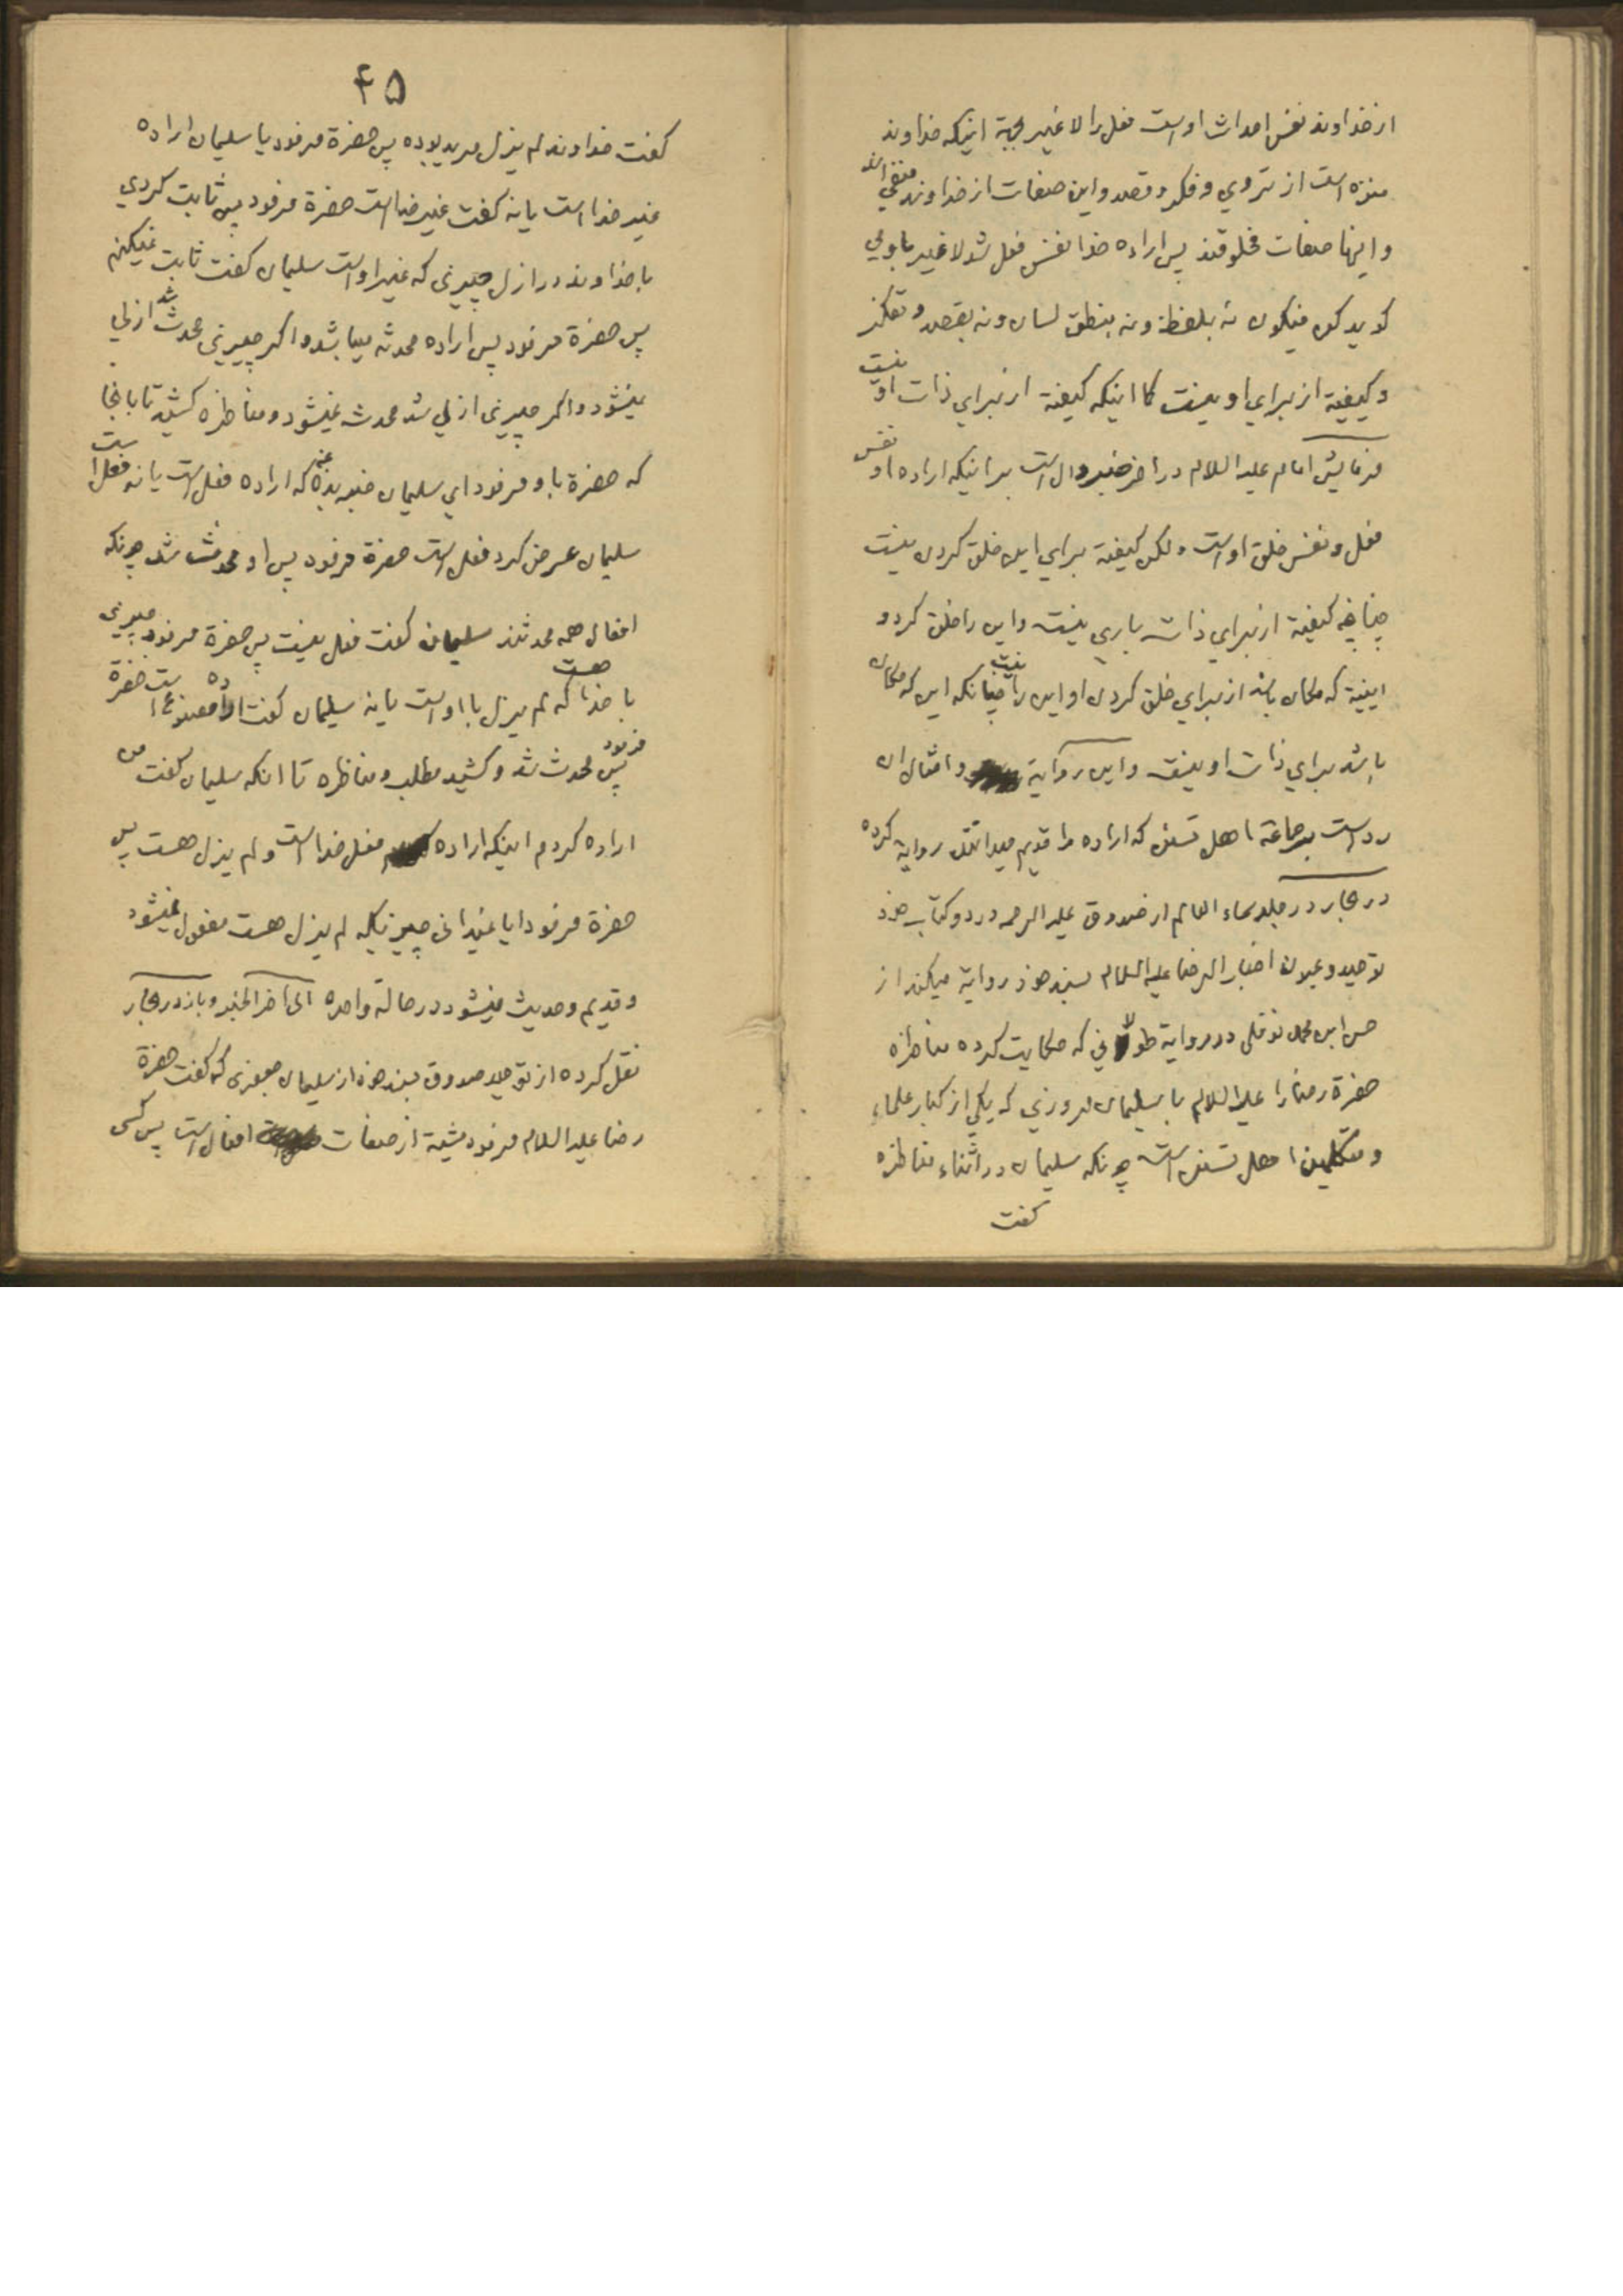 از خداوند نفس احداث اوست فعل را لا غیر بجهة اینکه خداوند
منزه است از تروي و فکر و قصد و این صفات از خداوند منفي اند
و اینها صفات مخلوقند پس اراده خدا نفس فعل شد لا غیر باو مي
کوید کن فیکون نه بلفظ و نه بنطق لسان و نه بقصد و تفکر
و کیفیة از براي او نیست کما اینکه کیفیة از براي ذات او نیست
فرمایش امام علیه السلام در اخر خبر دال است براینکه اراده او نفس
فعل و نفس خلق اوست ولکن کیفیة براي این خلق کردن نیست
چنانچه کیفیة از براي ذات باري نیست و این را خلق کرد و
اینیة که مکان باشد از براي خلق کردن او این را نیست چنانکه این که مکان
باشد براي ذات او نیست و این روایة و امثال ان
رد است بر جماعة اهل تسنن که اراده را قدیم میدانند روایة کرده
در بحار در جلد سماء العالم از صدوق علیه الرحمه در دو کتاب خود
توحید و عیون اخبار الرضا علیه السلام بسند خود روایة میکند از
حسن ابن محمد نوفلي در روایة طولاني که حکایت کرده مناظره
حضرة رضا را علیه السلام با سلیمان مروزي که یکي از کبار علماء
و متکلمین اهل تسنن است چونکه سلیمان در اثناء مناظره
کفت
۴۵
کفت خداوند لم یزل مرید بوده پس حضرة فرمود یا سلیمان اراده
غیر خدا است یا نه کفت غیر خدا است حضرة فرمود پس ثابت کردي
با خداوند در ازل چیزي که غیر اوست سلیمان کفت ثابت نمیکنم
پس حضرة فرمود پس اراده محدثه میباشد و اکر چیزي محدث شد ازلي
نمیشود و اکر چیزي ازلي شد محدث نمیشود و مناظره کشید تا باینجا
که حضرة باو فرمود اي سلیمان خبر بده که اراده فعل است یا نه فعل است
سلیمان عرض کرد فعل است حضرة فرمود پس او محدث شد چونکه
افعال همه محدثند سلیمان کفت فعل نیست پس حضرة فرمود چیزي
با خدا هست که لم یزل با اوست یا نه سلیمان کفت اراده مصنوع است حضرة
فرمود پس محدث شد و کشید مطلب و مناظره تا انکه سلیمان کفت من
اراده کردم اینکه اراده فعل خدا است و لم یزل هست پس
حضرة فرمود ایا نمیداني چیزیکه لم یزل هست مفعول نمیشود
و قدیم و حدیث نمیشود در حالة واحده الی آخر الخبر و باز در بحار
نقل کرده از توحید صدوق بسند خود از سلیمان جعفری که کفت حضرة
رضا علیه السلام فرمود مشیة از صفات افعال است پس کسی